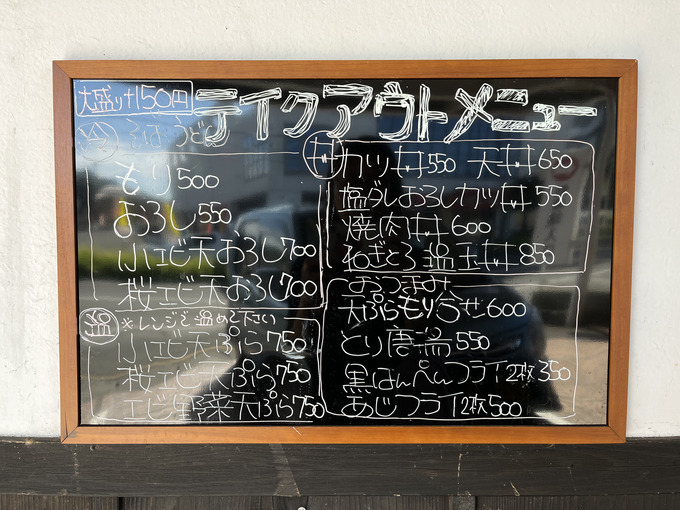 大盛り+150円
テイクアウトメニュー
冷 そば うどん
もり500
おろし550
小エビ天おろし700
桜エビ天おろし700
温 ※レンジで温めて下さい
小エビ天ぷら750
桜エビ天ぷら750
エビ野菜天ぷら750
丼 カツ丼550 天丼650
塩ダレおろしカツ丼550
焼肉丼600
ねぎとろ温玉丼850
おつまみ
天ぷらもり合せ600
とり唐揚550
黒はんぺんフライ2枚350
あじフライ2枚500